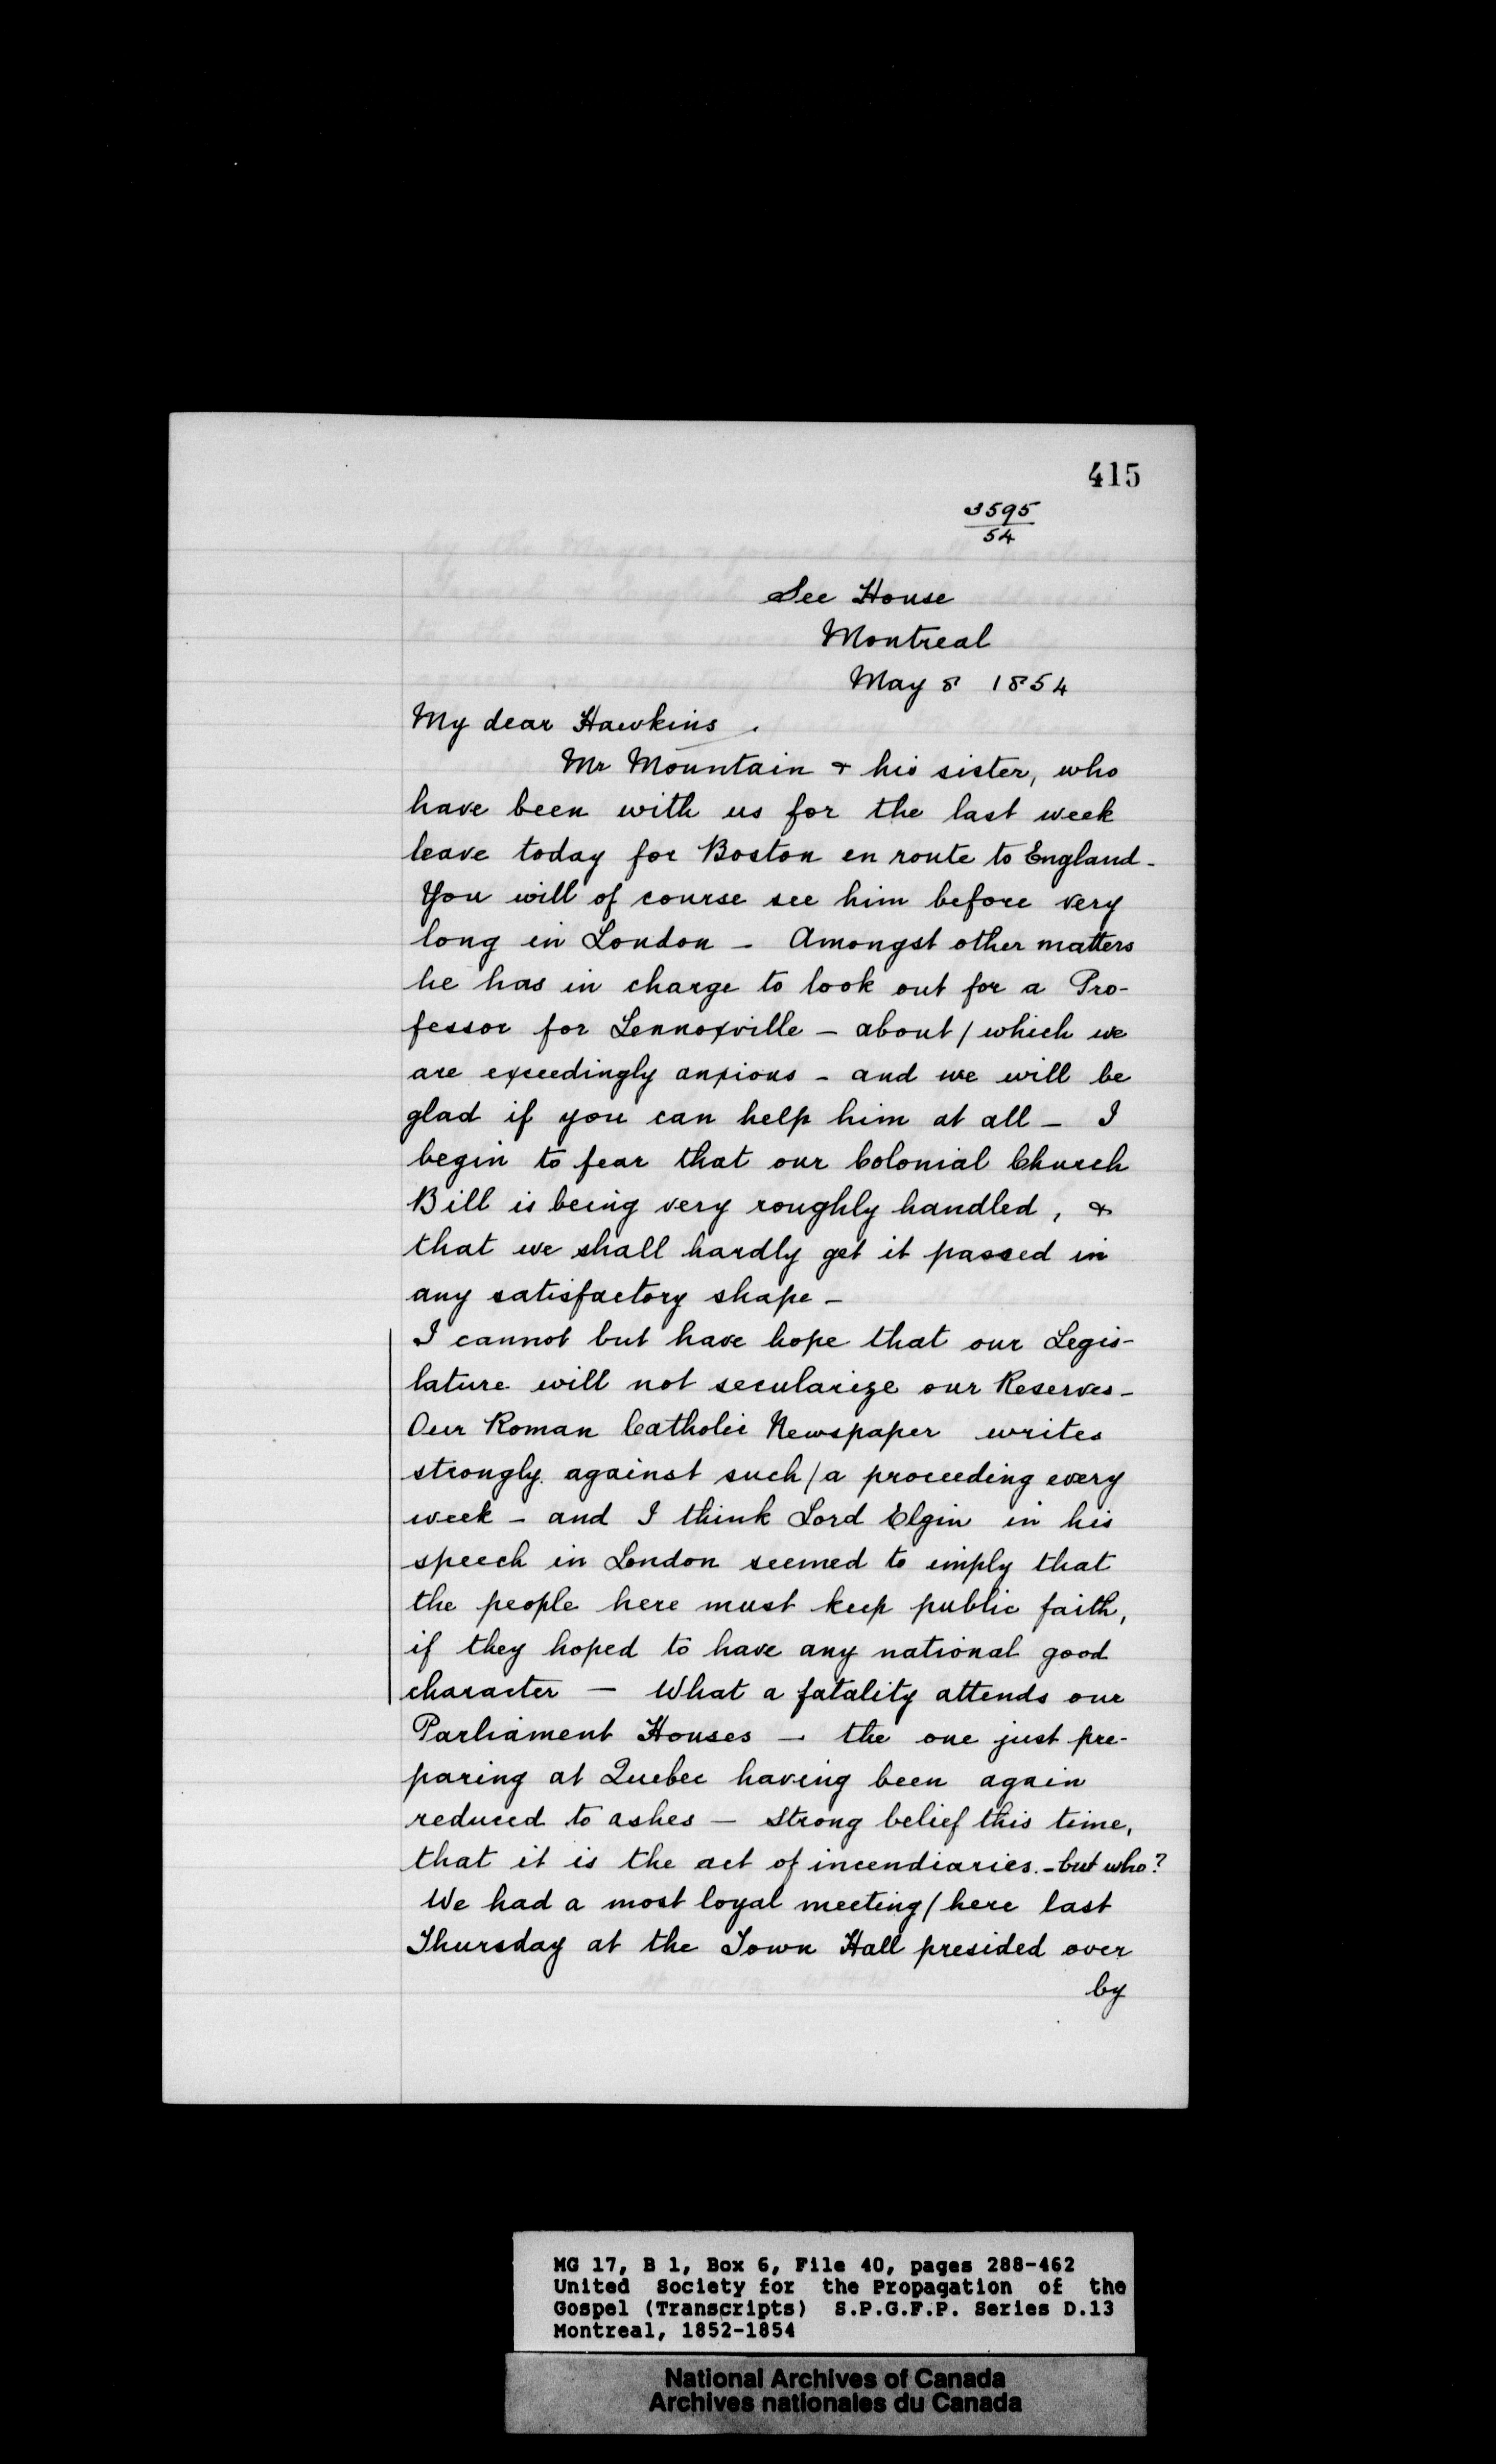 415
3595
54
See House
Montreal
May 8 1854
My dear Hawkins.
Mr Mountain & his sister, who
have been with us for the last week
leave today for Boston en route to England -
You will of course see him before very
long in London - Amongst other matters
he has in charge to look out for a Pro-
fessor for Lennoxville - about / which we
are exceedingly anxious - and we will be
glad if you can help him at all - I
begin to fear that our Colonial Church
Bill is being very roughly handled, &
that we shall hardly get it passed in
any satisfactory shape -
I cannot but have hope that our Legis-
lature will not secularize our Reserves -
Our Roman Catholic Newspaper writes
strongly against such / a proceeding every
week - and I think Lord Elgin in his
speech in London seemed to imply that
the people here must keep public faith,
if they hoped to have any national good
character - What a fatality attends our
Parliament Houses - the one just pre-
paring at Quebec having been again
reduced to ashes - Strong belief this time,
that it is the act of incendiaries. - but who?
We had a most loyal meeting / here last
Thursday at the Town Hall presided over
by
MG 17, B 1, Box 6, File 40, pages 288-462
United Society for the Propagation of the
Gospel (Transcripts) S.P.G.F.P. Series D.13
Montreal, 1852-1854
National Archives of Canada
Archives nationales du Canada